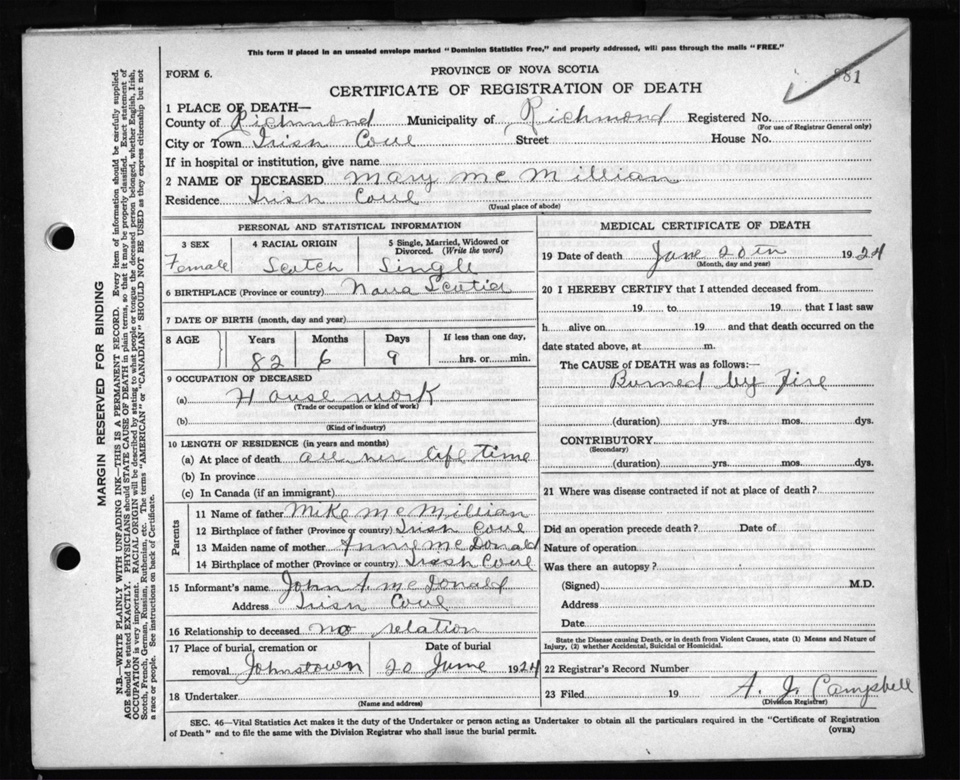 This form if placed in an unsealed envelope marked "Dominion Statistics Free," and properly addressed, will pass through the mails "FREE."
FORM 6.
PROVINCE OF NOVA SCOTIA
881
CERTIFICATE OF REGISTRATION OF DEATH
1 PLACE OF DEATH—
County of Richmond Municipality of Richmond Registered No.
(For use of Registrar General only)
City or Town Irish Coul Street House No.
If in hospital or institution, give name
2 NAME OF DECEASED Mary McMillian
Residence Irish Coul
(Usual place of abode)
PERSONAL AND STATISTICAL INFORMATION
3 SEX 4 RACIAL ORIGIN 5 Single, Married, Widowed or Divorced. (Write the word)
Female Scotch Single
6 BIRTHPLACE (Province or country) Nova Scotia
7 DATE OF BIRTH (month, day and year)
8 AGE Years Months Days If less than one day,
82 6 9 hrs. or min.
9 OCCUPATION OF DECEASED
(a) House work
(Trade or occupation or kind of work)
(b)
(Kind of industry)
10 LENGTH OF RESIDENCE (in years and months)
(a) At place of death all her life time
(b) In province
(c) In Canada (if an immigrant)
Parents
11 Name of father Mike McMillian
12 Birthplace of father (Province or country) Irish Coul
13 Maiden name of mother Annie McDonald
14 Birthplace of mother (Province or country) Irish Coul
15 Informant's name John A McDonald
Address Irish Coul
16 Relationship to deceased no relation
17 Place of burial, cremation or Date of burial
removal Johnstown 20 June 1924
18 Undertaker
(Name and address)
MEDICAL CERTIFICATE OF DEATH
19 Date of death June 20th 1924
(Month, day and year)
20 I HEREBY CERTIFY that I attended deceased from
19 to 19 that I last saw
h alive on 19 and that death occurred on the
date stated above, at m.
The CAUSE of DEATH was as follows:—
Burned by fire
(duration) yrs. mos. dys.
CONTRIBUTORY
(Secondary)
(duration) yrs. mos. dys.
21 Where was disease contracted if not at place of death?
Did an operation precede death? Date of
Nature of operation
Was there an autopsy?
(Signed) M.D.
Address
Date
State the Disease causing Death, or in death from Violent Causes, state (1) Means and Nature of
Injury, (2) whether Accidental, Suicidal or Homicidal.
22 Registrar's Record Number
23 Filed 19 A. J. Campbell
(Division Registrar)
SEC. 46—Vital Statistics Act makes it the duty of the Undertaker or person acting as Undertaker to obtain all the particulars required in the "Certificate of Registration
of Death" and to file the same with the Division Registrar who shall issue the burial permit.
(OVER)
MARGIN RESERVED FOR BINDING
N.B.—WRITE PLAINLY WITH UNFADING INK—THIS IS A PERMANENT RECORD. Every item of information should be carefully supplied.
AGE should be stated EXACTLY. PHYSICIANS should STATE CAUSE OF DEATH in plain terms, so that it may be properly classified. Exact statement of
OCCUPATION is very important. RACIAL ORIGIN will be described by stating to what people or tongue the deceased person belonged, whether English, Irish,
Scotch, French, German, Russian, Ruthenian, etc. The terms "AMERICAN" or "CANADIAN" SHOULD NOT BE USED as they express citizenship but not
a race or people. See instructions on back of Certificate.